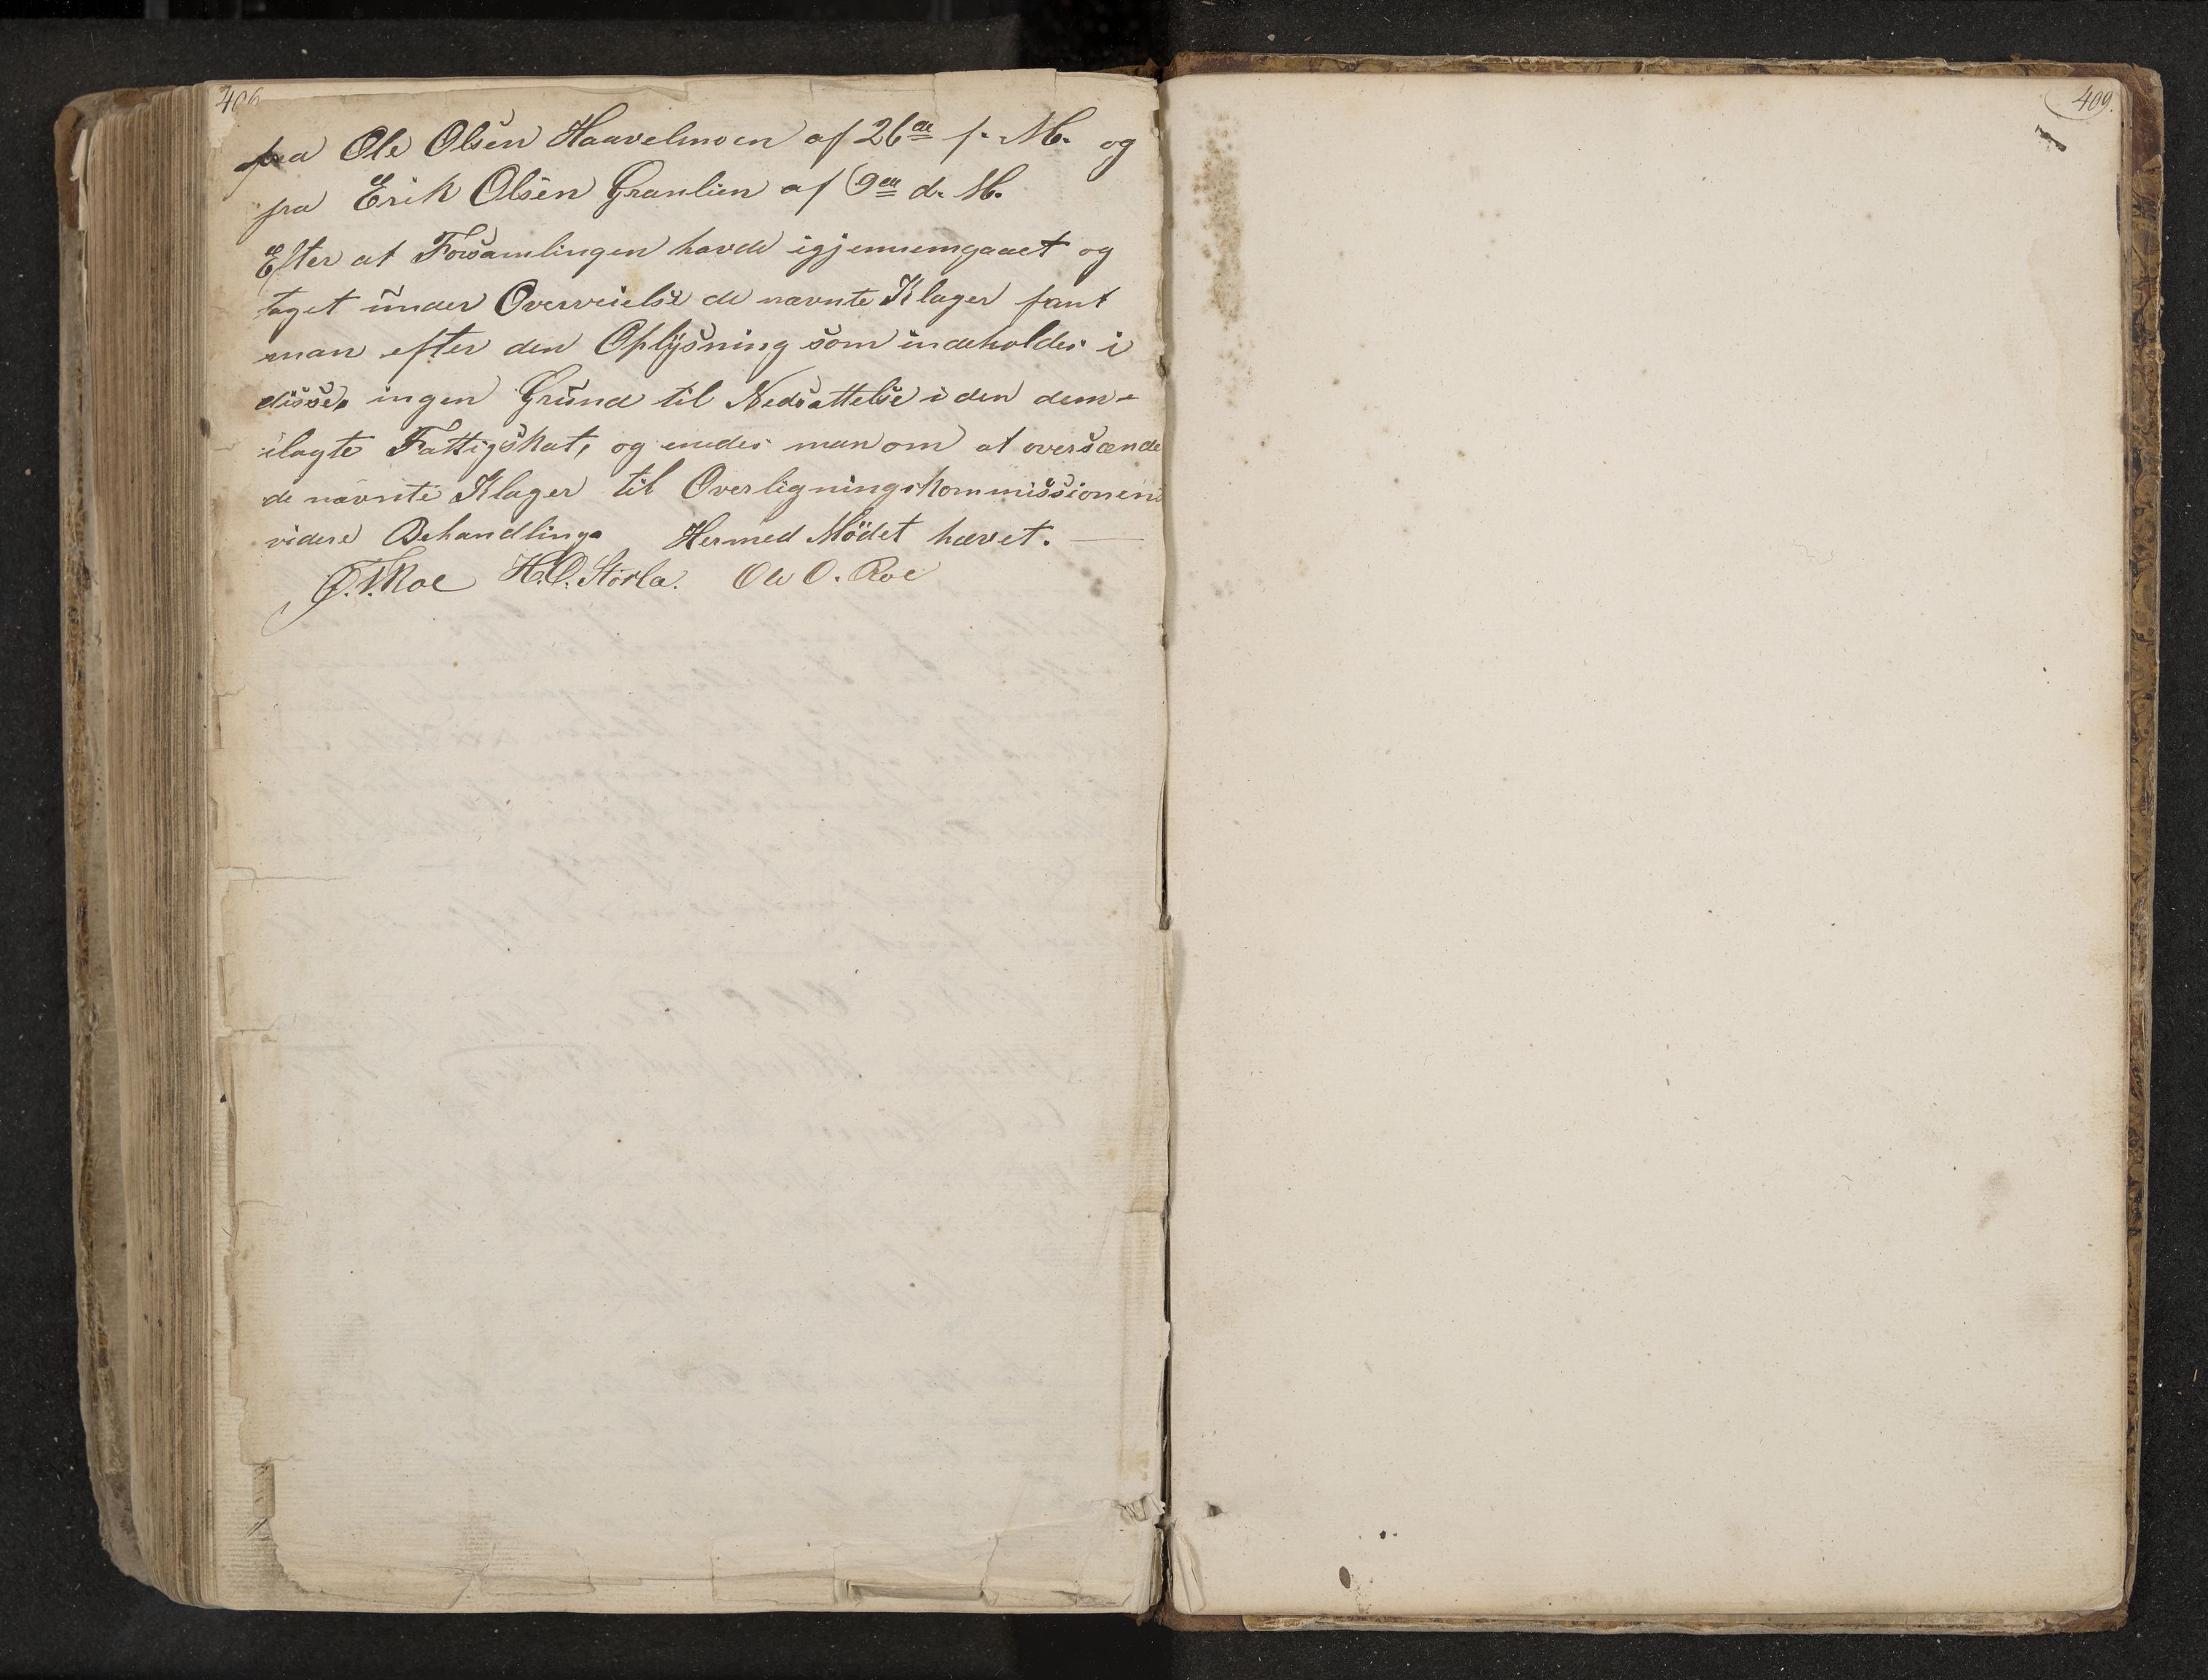 406
fra Ole Olsen Haavelmoen af 26de f. M. og
fra Erik Olsen Granlien af 9de d. M.
Efter at Forsamlingen havde igjennemgaaet og
taget under Overveielse de nævnte Klager fant
man efter den Oplysning som indeholdes i
disse, ingen Grund til Nedsættelse i den dem
ilagte Fattigskat, og enedes man om at oversænde
de nævnte Klager til Overligningskommissionens
videre Behandling. Hermed Mödet hævet.
H.O. Storla. Ole O. Roe
409.